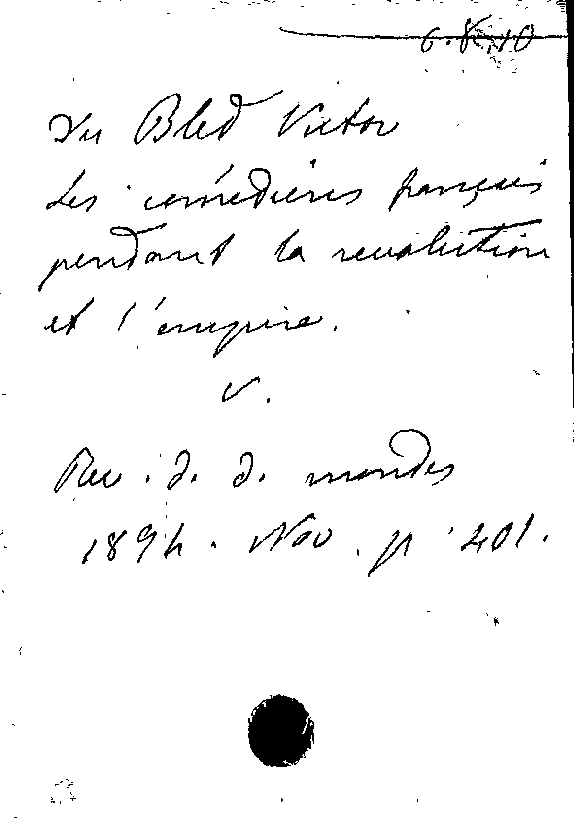 6.8.10
Du Bled Victor
Les comédiens français
pendant la revolution
et l'empire.
v.
Rev. d. d. mondes
1894. Nov. p 401.